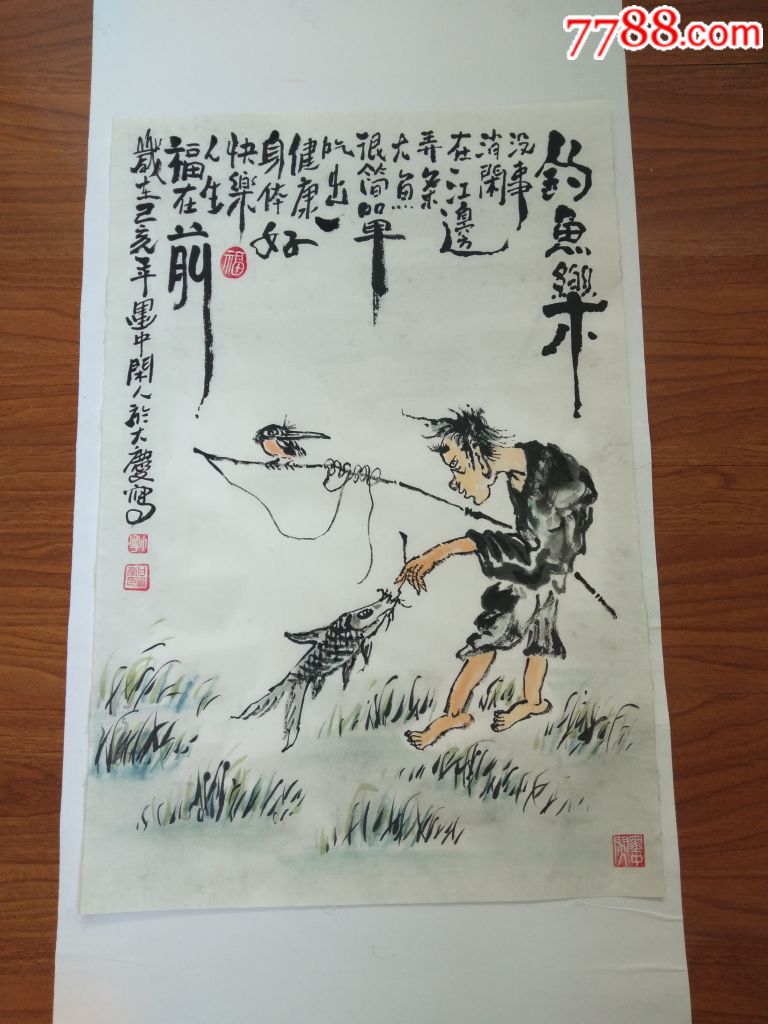 7788.com
釣魚樂
没事
消閑
在江邊
弄条
大魚
很简單
吃出
健康
身体好
快樂
人生
福在前
歲在己亥年墨中閑人於大慶寫
福
墨中閑人